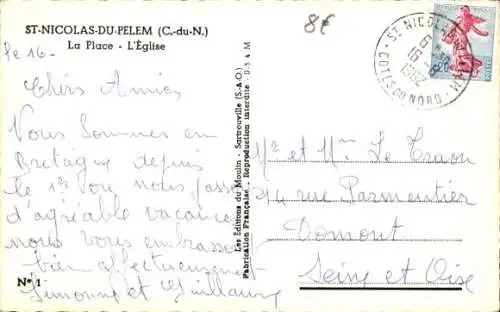 ST-NICOLAS-DU-PELEM (C.-du-N.)
La Place - L'Église
8€
le 16-
Chers Amies
Nous Sommes en
Bretagne depuis
le 1er où nous
d'agréable vacances
nous vous embrassons
bien affectueusement
Simonne et
N° 1
Les Éditions du Moulin - Sartrouville (S.-&-O.)
Fabrication Française. Reproduction interdite - D.S.4 M
ST NICOLAS DU PELEM
16-8
1962
COTES DU NORD
Mr et Mme Le Traou
14 rue Parmentier
Domont
Seine et Oise